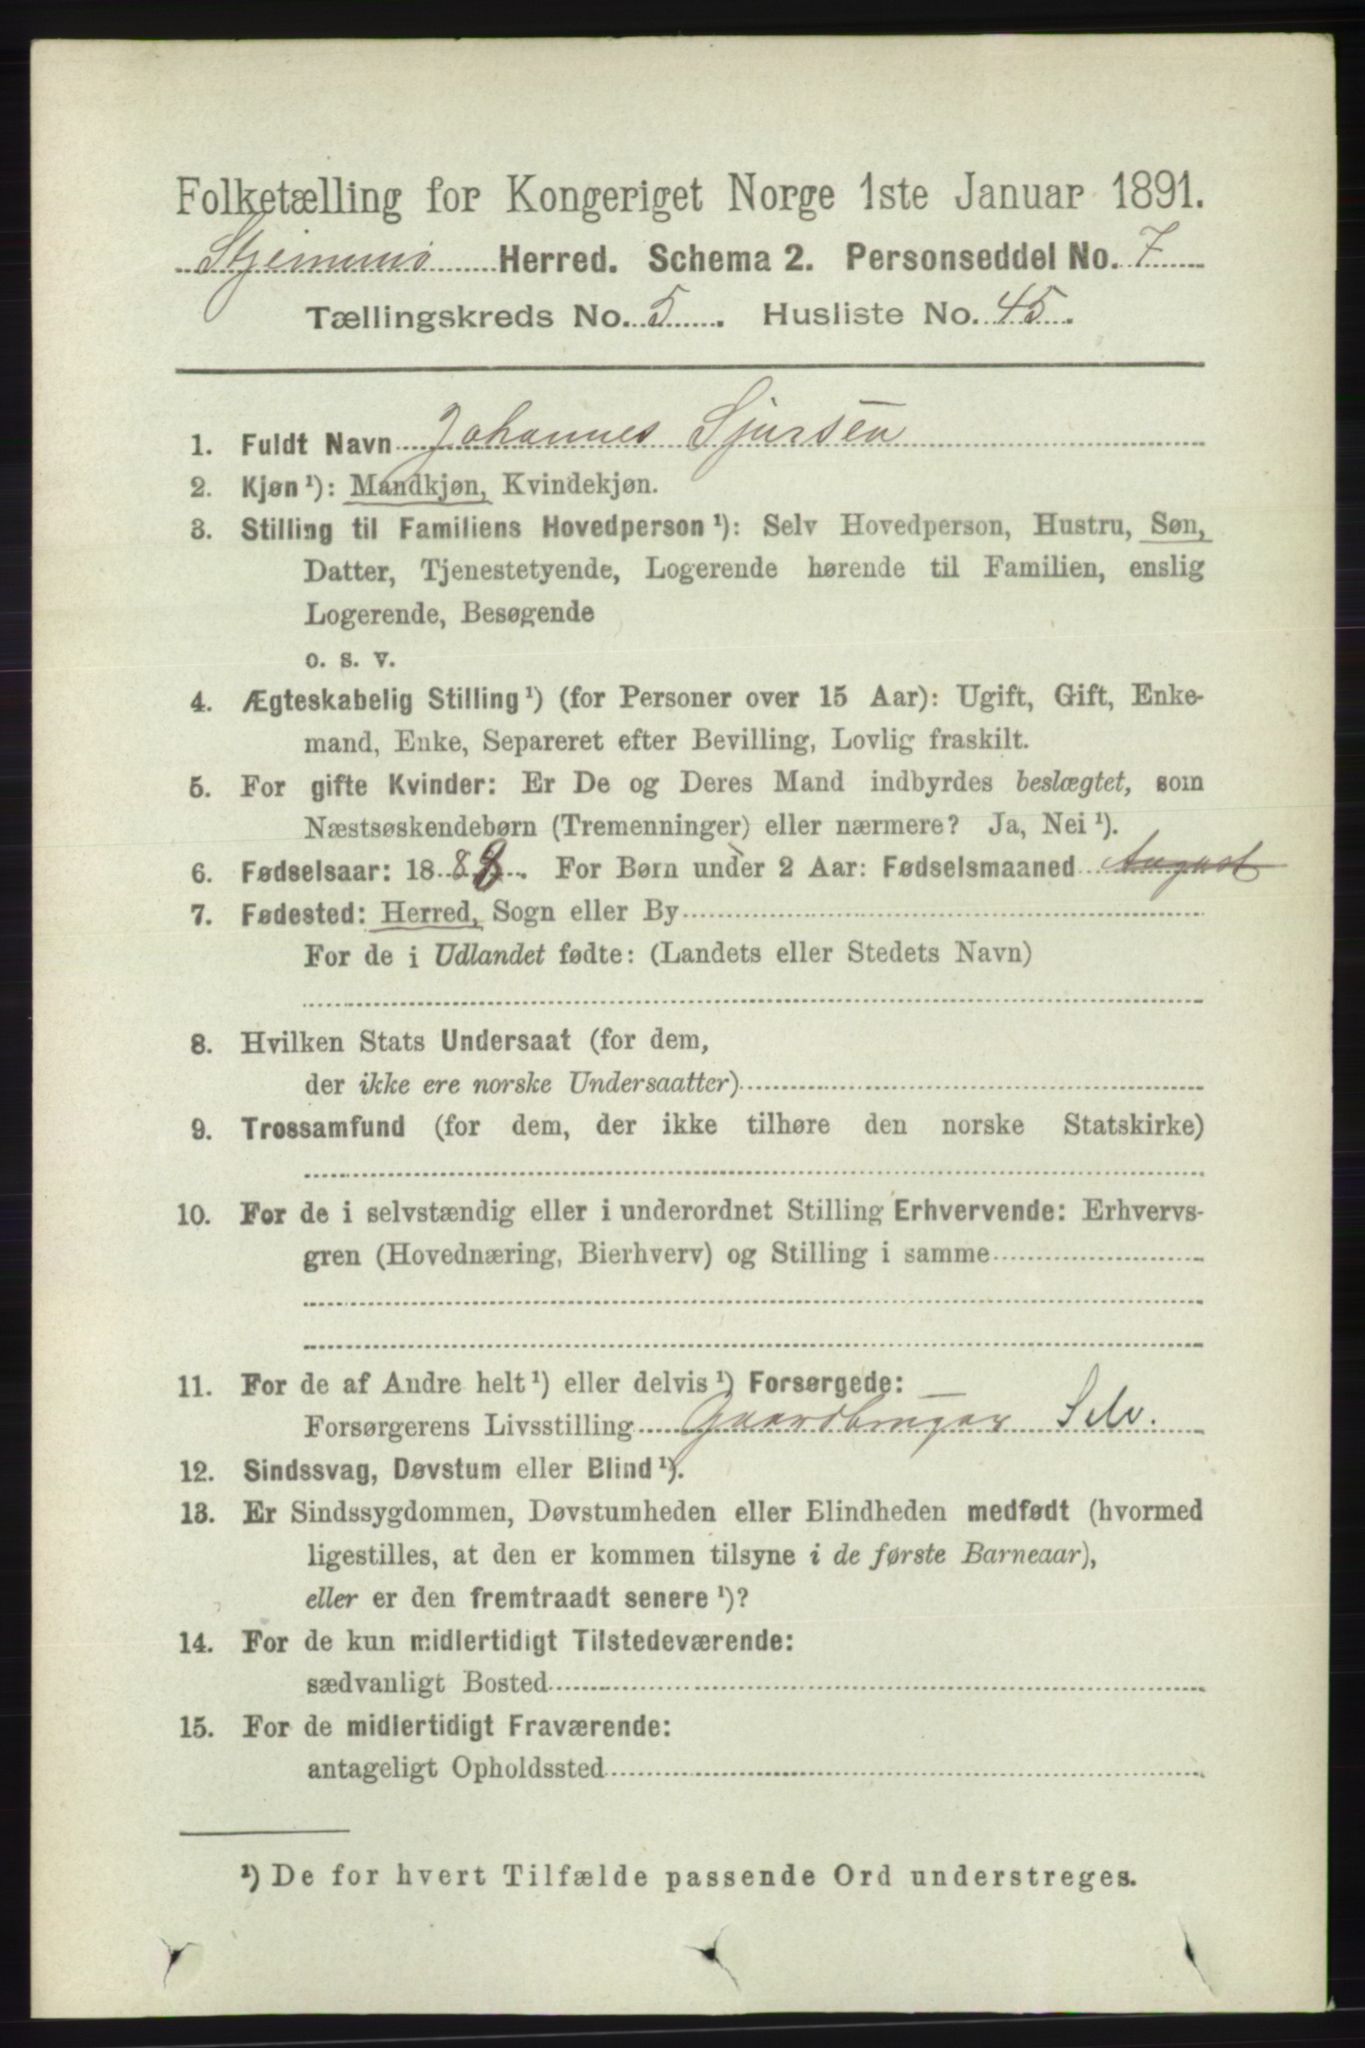 Folketælling for Kongeriget Norge 1ste Januar 1891.
Herred. Schema 2. Personseddel No. 7
Tællingskreds No. 5. Husliste No. 45.
1. Fuldt Navn Johannes Sjursen
2. Kjøn¹): Mandkjøn, Kvindekjøn.
3. Stilling til Familiens Hovedperson¹): Selv Hovedperson, Hustru, Søn,
Datter, Tjenestetyende, Logerende hørende til Familien, enslig
Logerende, Besøgende
o. s. v.
4. Ægteskabelig Stilling¹) (for Personer over 15 Aar): Ugift, Gift, Enke-
mand, Enke, Separeret efter Bevilling, Lovlig fraskilt.
5. For gifte Kvinder: Er De og Deres Mand indbyrdes beslægtet, som
Næstsøskendebørn (Tremenninger) eller nærmere? Ja, Nei¹).
6. Fødselsaar: 1888. For Børn under 2 Aar: Fødselsmaaned August
7. Fødested: Herred, Sogn eller By
For de i Udlandet fødte: (Landets eller Stedets Navn)
8. Hvilken Stats Undersaat (for dem,
der ikke ere norske Undersaatter)
9. Trossamfund (for dem, der ikke tilhøre den norske Statskirke)
10. For de i selvstændig eller i underordnet Stilling Erhvervende: Erhvervs-
gren (Hovednæring, Bierhverv) og Stilling i samme
11. For de af Andre helt¹) eller delvis¹) Forsørgede:
Forsørgerens Livsstilling Gaardbruger Selv.
12. Sindssvag, Døvstum eller Blind¹).
13. Er Sindssygdommen, Døvstumheden eller Blindheden medfødt (hvormed
ligestilles, at den er kommen tilsyne i de første Barneaar),
eller er den fremtraadt senere¹)?
14. For de kun midlertidigt Tilstedeværende:
sædvanligt Bosted
15. For de midlertidigt Fraværende:
antageligt Opholdssted
¹) De for hvert Tilfælde passende Ord understreges.